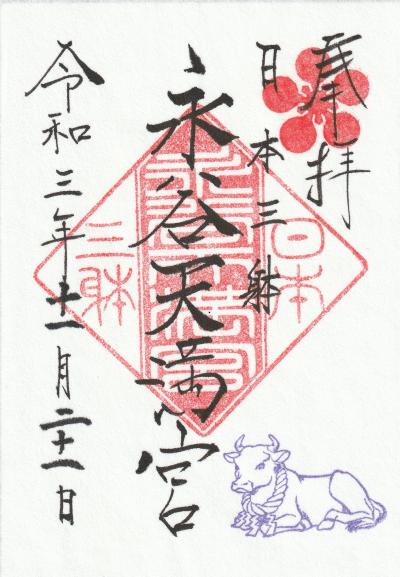 奉拝
日本三躰
永谷天満宮
令和三年十一月二十一日
日本
三躰